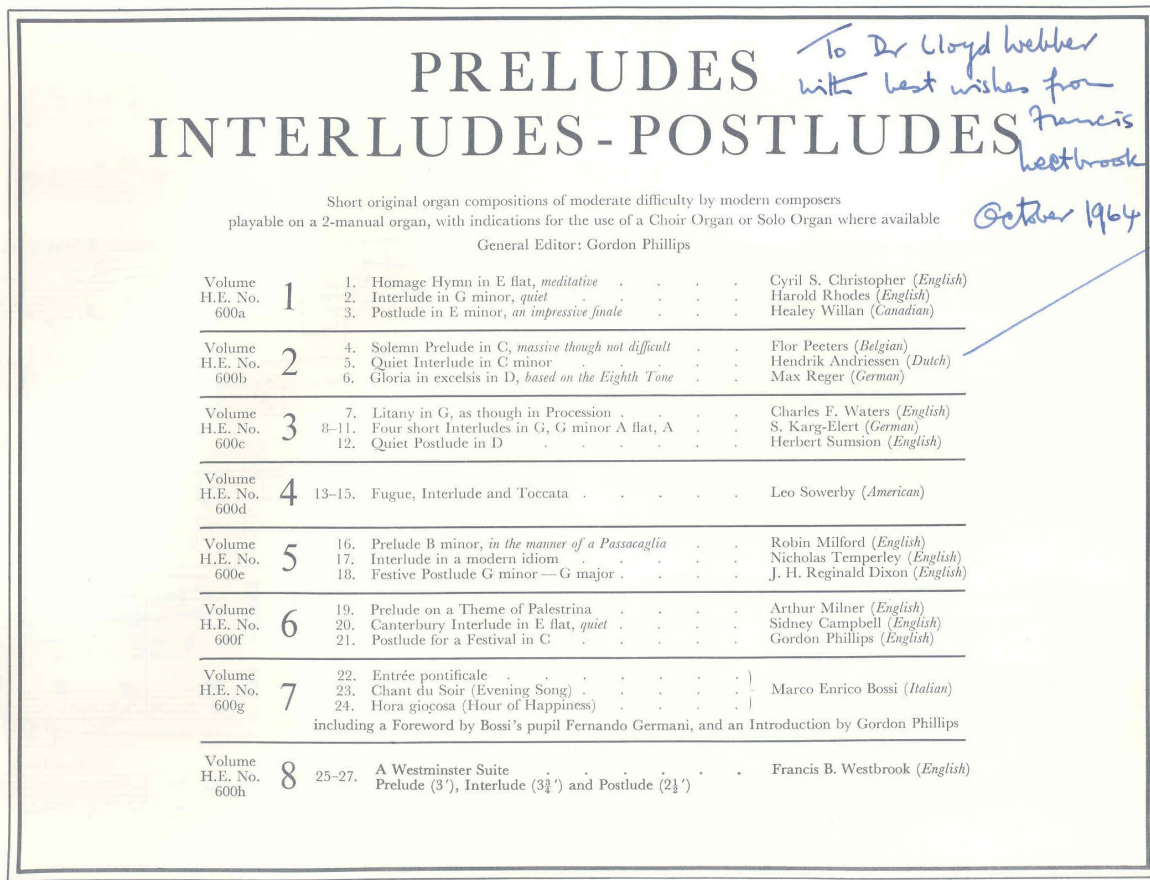 To Dr Lloyd Webber
with best wishes from
Francis
Westbrook
October 1964
PRELUDES
INTERLUDES - POSTLUDES
Short original organ compositions of moderate difficulty by modern composers
playable on a 2-manual organ, with indications for the use of a Choir Organ or Solo Organ where available
General Editor: Gordon Phillips
Volume H.E. No. 600a 1
1. Homage Hymn in E flat, meditative . . . . Cyril S. Christopher (English)
2. Interlude in G minor, quiet . . . . . Harold Rhodes (English)
3. Postlude in E minor, an impressive finale . . . Healey Willan (Canadian)
Volume H.E. No. 600b 2
4. Solemn Prelude in C, massive though not difficult . . Flor Peeters (Belgian)
5. Quiet Interlude in C minor . . . . . Hendrik Andriessen (Dutch)
6. Gloria in excelsis in D, based on the Eighth Tone . . Max Reger (German)
Volume H.E. No. 600c 3
7. Litany in G, as though in Procession . . . . Charles F. Waters (English)
8–11. Four short Interludes in G, G minor A flat, A . . S. Karg-Elert (German)
12. Quiet Postlude in D . . . . . . Herbert Sumsion (English)
Volume H.E. No. 600d 4
13–15. Fugue, Interlude and Toccata . . . . . Leo Sowerby (American)
Volume H.E. No. 600e 5
16. Prelude B minor, in the manner of a Passacaglia . . Robin Milford (English)
17. Interlude in a modern idiom . . . . . Nicholas Temperley (English)
18. Festive Postlude G minor — G major . . . . J. H. Reginald Dixon (English)
Volume H.E. No. 600f 6
19. Prelude on a Theme of Palestrina . . . . Arthur Milner (English)
20. Canterbury Interlude in E flat, quiet . . . . Sidney Campbell (English)
21. Postlude for a Festival in C . . . . . Gordon Phillips (English)
Volume H.E. No. 600g 7
22. Entrée pontificale . . . . . . .
23. Chant du Soir (Evening Song) . . . . . Marco Enrico Bossi (Italian)
24. Hora giocosa (Hour of Happiness) . . . .
including a Foreword by Bossi's pupil Fernando Germani, and an Introduction by Gordon Phillips
Volume H.E. No. 600h 8
25–27. A Westminster Suite . . . . . . Francis B. Westbrook (English)
Prelude (3′), Interlude (3¾′) and Postlude (2½′)